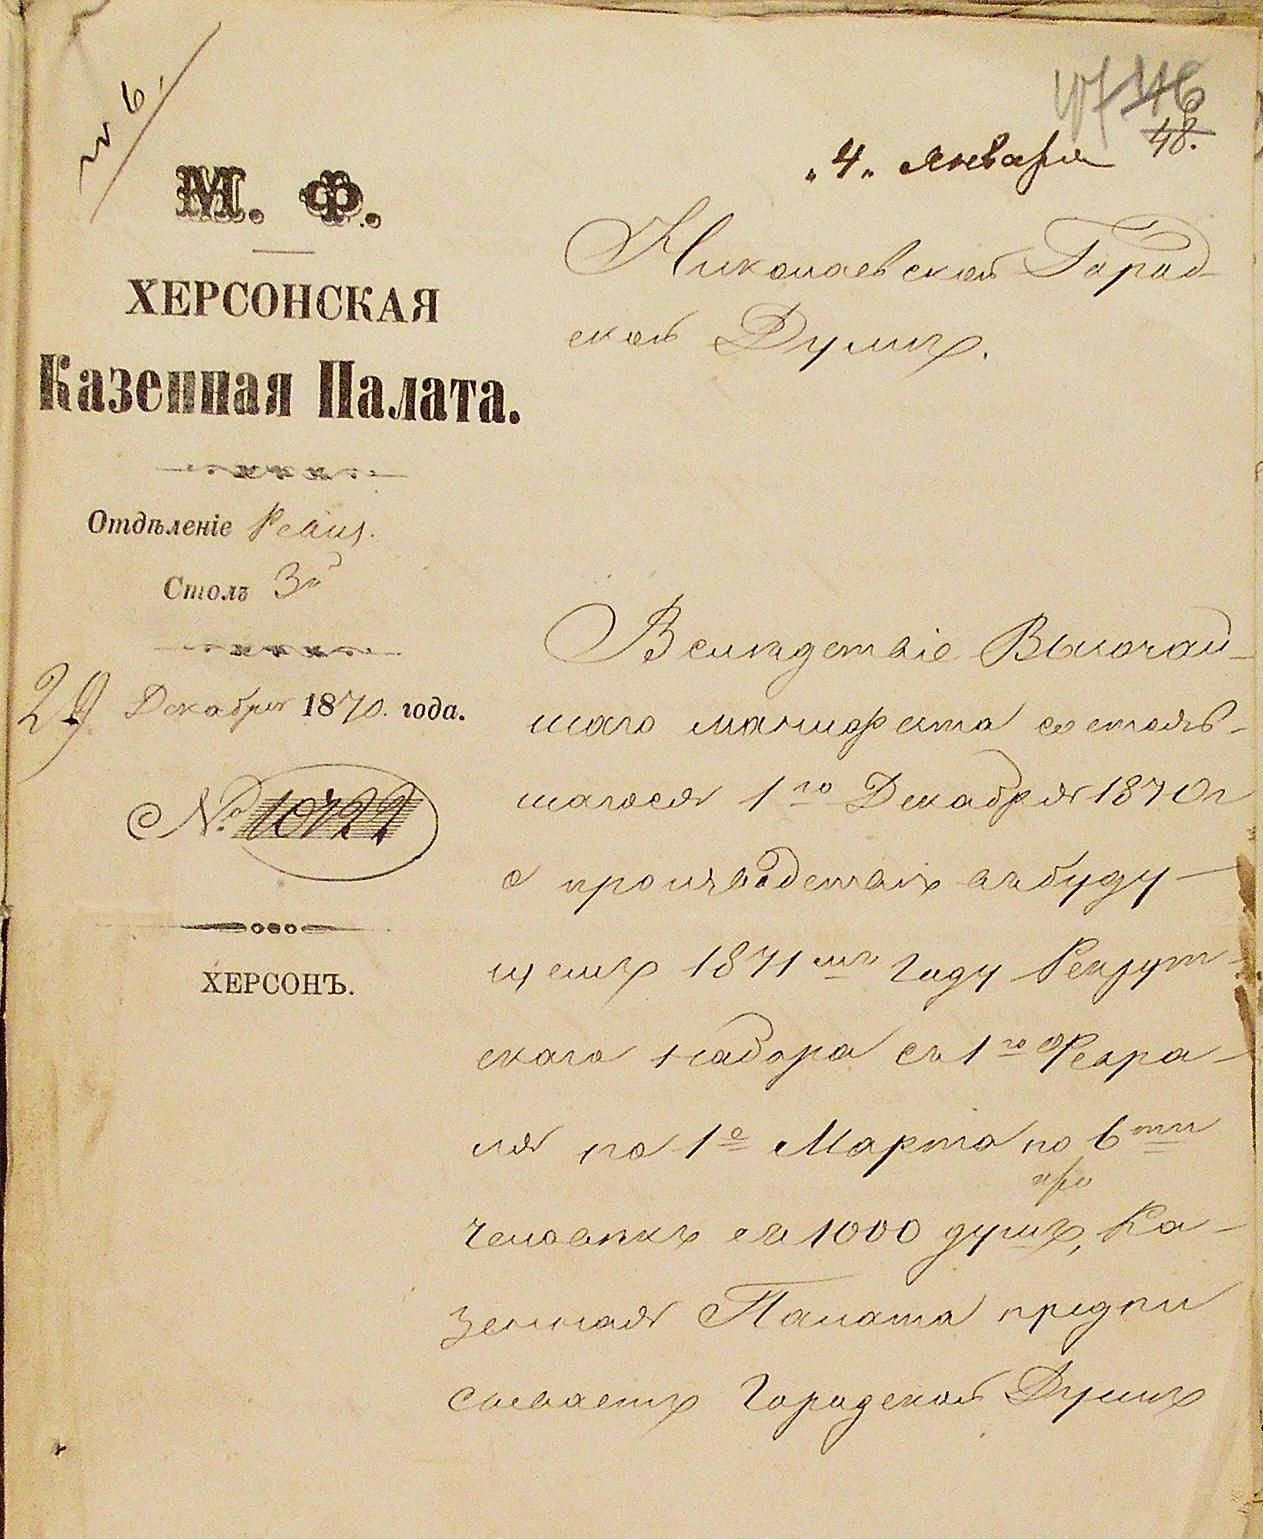 № 6.
48.
„4„ Января
М. Ф.
ХЕРСОНСКАЯ
Казенная Палата.
Отдѣленіе Ревиз.
Столъ 3й
29 Декабря 1870. года.
№ 10722
ХЕРСОНЪ.
Николаевской Город-
ской Думѣ.
Вслѣдствіе Высочай-
шаго манифеста состояв-
шагося 1го Декабря 1870 г
о произведствѣ въ буду-
щемъ 1871мъ году Рекрут-
скаго набора съ 1го Февра-
ля по 1е Марта по 6ти
человѣкъ съ 1000 душъ, Ка-
зенная Палата предпи
сываетъ Городской Думѣ